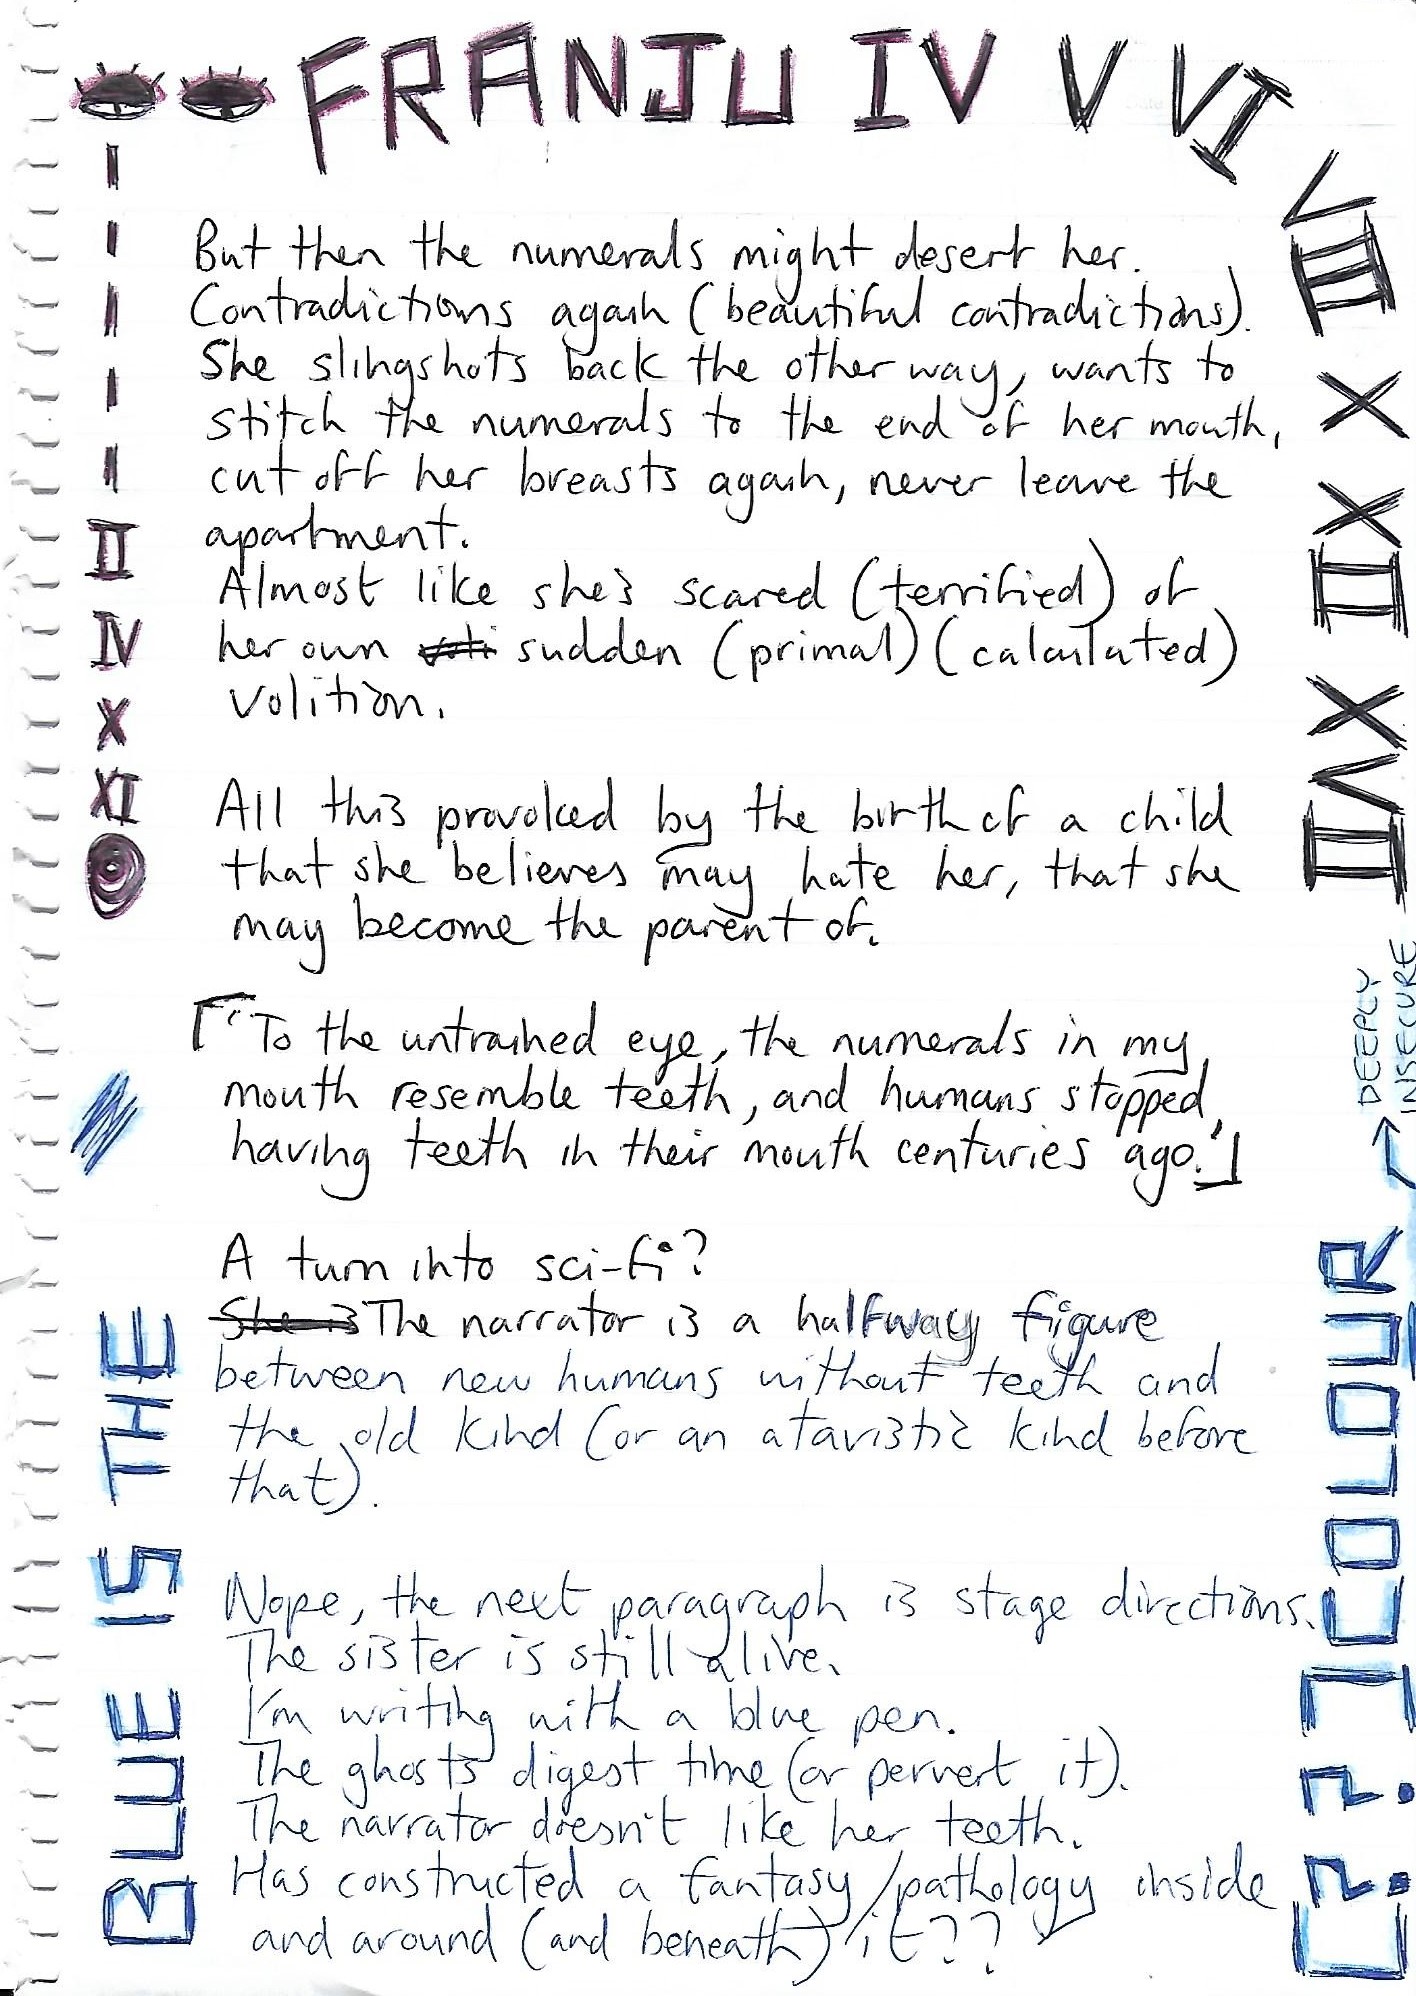 FRANJU IV V VI
VIII
X
XII
XVII
I
I
I
I
I
II
IV
X
XI
But then the numerals might desert her.
Contradictions again (beautiful contradictions).
She slingshots back the other way, wants to
stitch the numerals to the end of her mouth,
cut off her breasts again, never leave the
apartment.
Almost like she's scared (terrified) of
her own voliti sudden (primal) (calculated)
volition.
All this provoked by the birth of a child
that she believes may hate her, that she
may become the parent of.
「'To the untrained eye, the numerals in my
mouth resemble teeth, and humans stopped
having teeth in their mouth centuries ago.'」
A turn into sci-fi?
She is The narrator is a halfway figure
between new humans without teeth and
the old kind (or an atavistic kind before
that).
Nope, the next paragraph is stage directions.
The sister is still alive.
I'm writing with a blue pen.
The ghosts digest time (or pervert it).
The narrator doesn't like her teeth.
Has constructed a fantasy/pathology inside
and around (and beneath) it??
BLUE IS THE
[??] COLOUR
→ DEEPLY
INSECURE